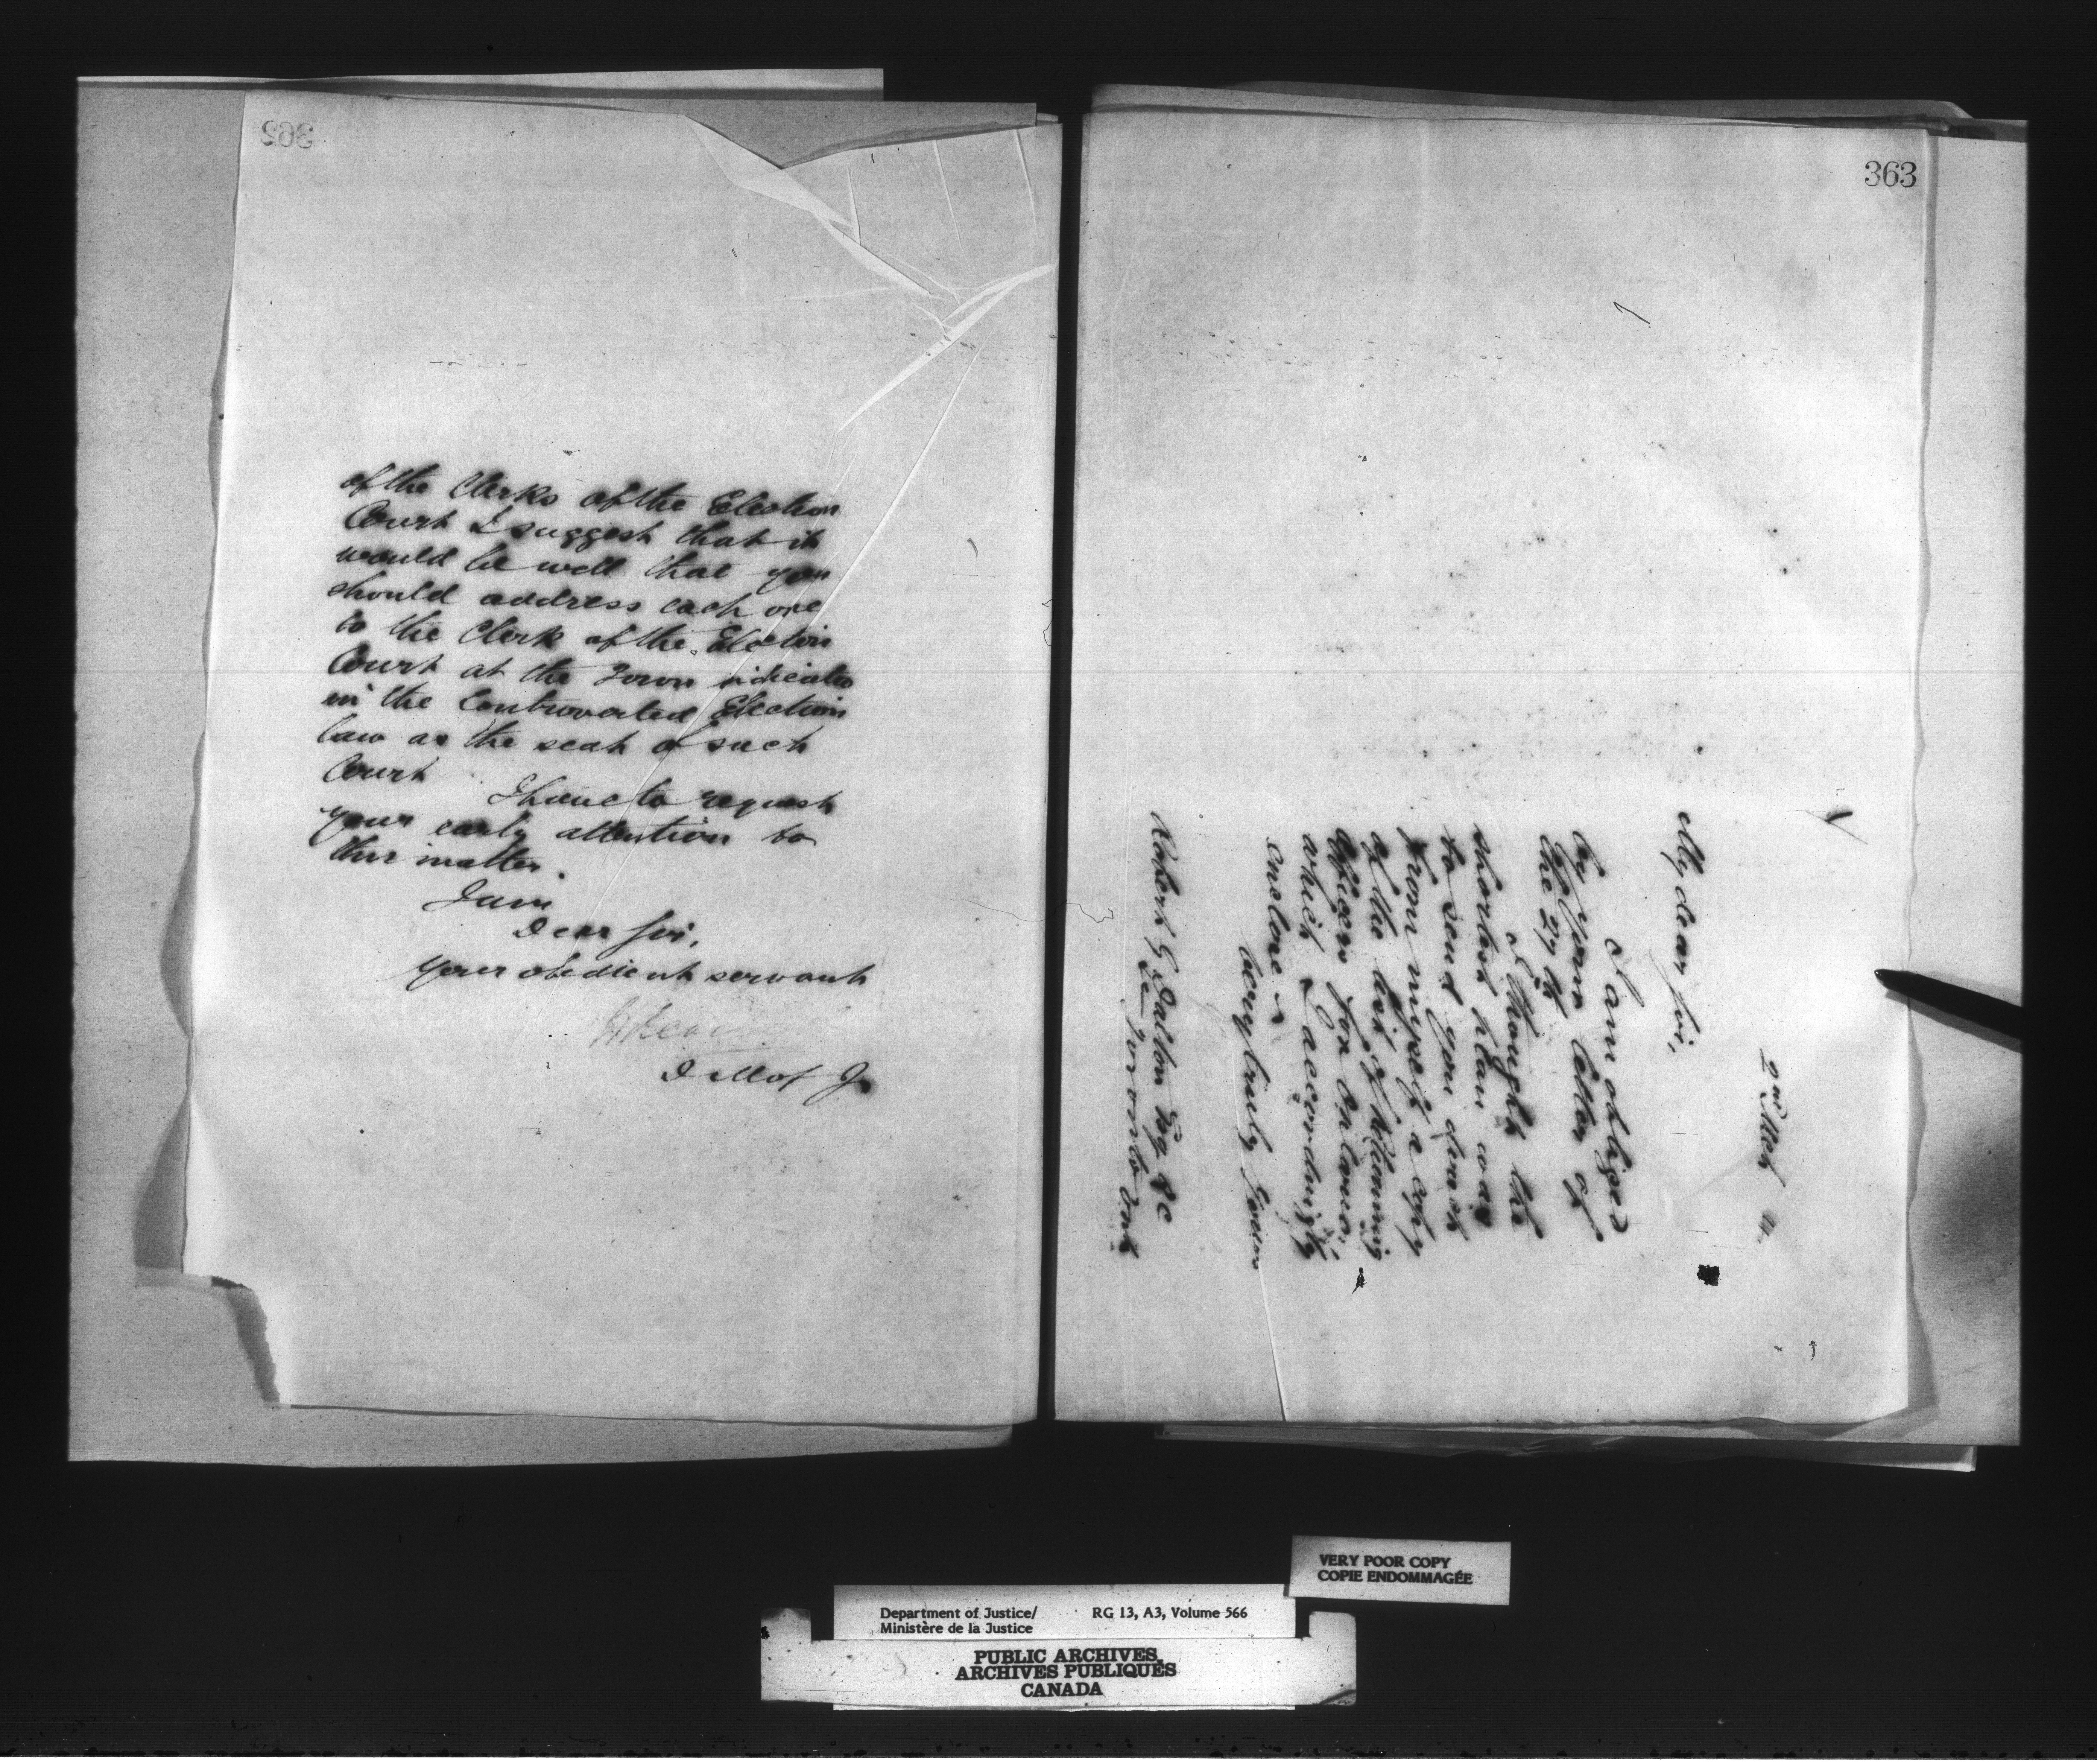 of the Clerks of the Election
Court I suggest that it
would be well that you
should address each one
to the Clerk of the Election
Court at the Town indicated
in the Controverted Election
law as the seat of such
Court
I have to request
your early attention to
this matter.
I am
Dear Sir,
Your obedient servant
D M of J
363
2nd Mch
My dear Sir,
I am obliged
by your letter of
the 27th
I thought the
shortest plan was
to send you down
from myself a copy
of the list of Returning
Officers for Ontario,
which I accordingly
enclose
Very truly yours
Robert G Dalton Esq QC
Toronto Ont
VERY POOR COPY
COPIE ENDOMMAGÉE
Department of Justice/ RG 13, A3, Volume 566
Ministère de la Justice
PUBLIC ARCHIVES
ARCHIVES PUBLIQUES
CANADA